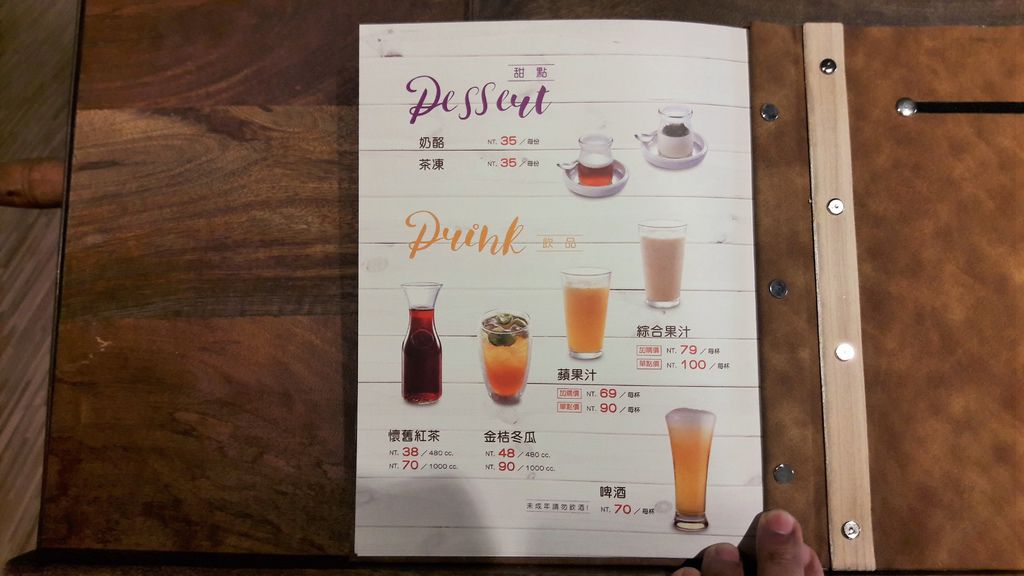 甜點
Dessert
奶酪 NT. 35／每份
茶凍 NT. 35／每份
Drink 飲品
綜合果汁
加購價 NT. 79／每杯
單點價 NT. 100／每杯
蘋果汁
加購價 NT. 69／每杯
單點價 NT. 90／每杯
懷舊紅茶
NT. 38／480 cc.
NT. 70／1000 cc.
金桔冬瓜
NT. 48／480 cc.
NT. 90／1000 cc.
啤酒
NT. 70／每杯
未成年請勿飲酒!